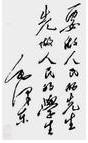 要做人民的先生
先做人民的学生
毛泽东